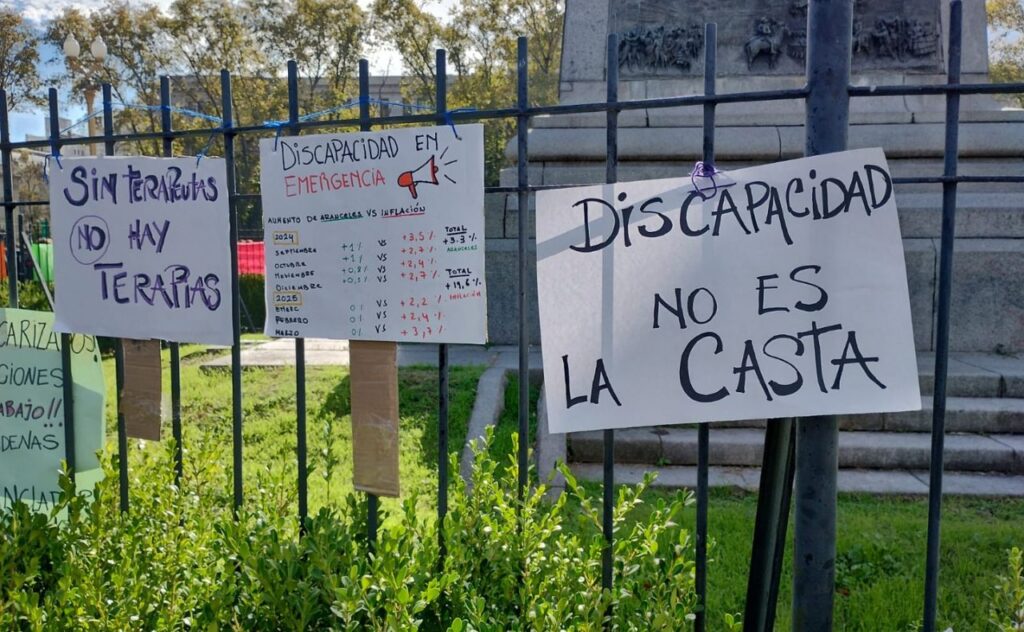 SIN TERAPEUTAS
NO HAY
TERAPIAS
DISCAPACIDAD EN
EMERGENCIA
AUMENTO DE ARANCELES VS INFLACIÓN
2024
SEPTIEMBRE +1% VS +3,5%
OCTUBRE +1% VS +2,7%
NOVIEMBRE +0,8% VS +2,4%
DICIEMBRE VS +2,7%
2025
ENERO 0% VS +2,2%
FEBRERO 0% VS +2,4%
MARZO 0% VS +3,7%
TOTAL
+3.3%
ARANCELES
TOTAL
+19,6%
INFLACIÓN
DISCAPACIDAD
NO ES
LA CASTA
CARIZA
CIONES
ABAJO!!
DENAS
NCIA